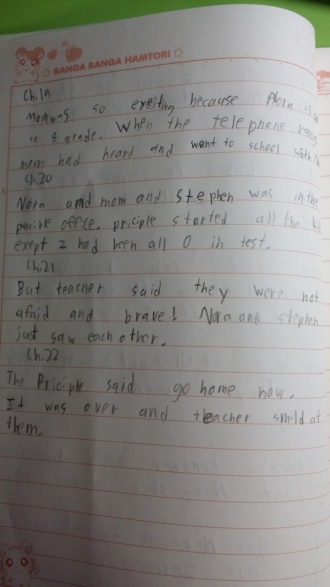 BANGA BANGA HAMTORI
Ch.19
Mom was so exeiting because Nora is
to 8 grade. When the telephone
mom had heard and went to scheel with
Ch.20
Nora and mom and stephen was in the
office. priciple started all the
exept 2 had been all 0 in test.
Ch.21
But teacher said they were not
afraid and brave! Nora and stephen
just saw each other.
Ch.22
The Priciple said go home now.
It was over and teacher smild at
them.